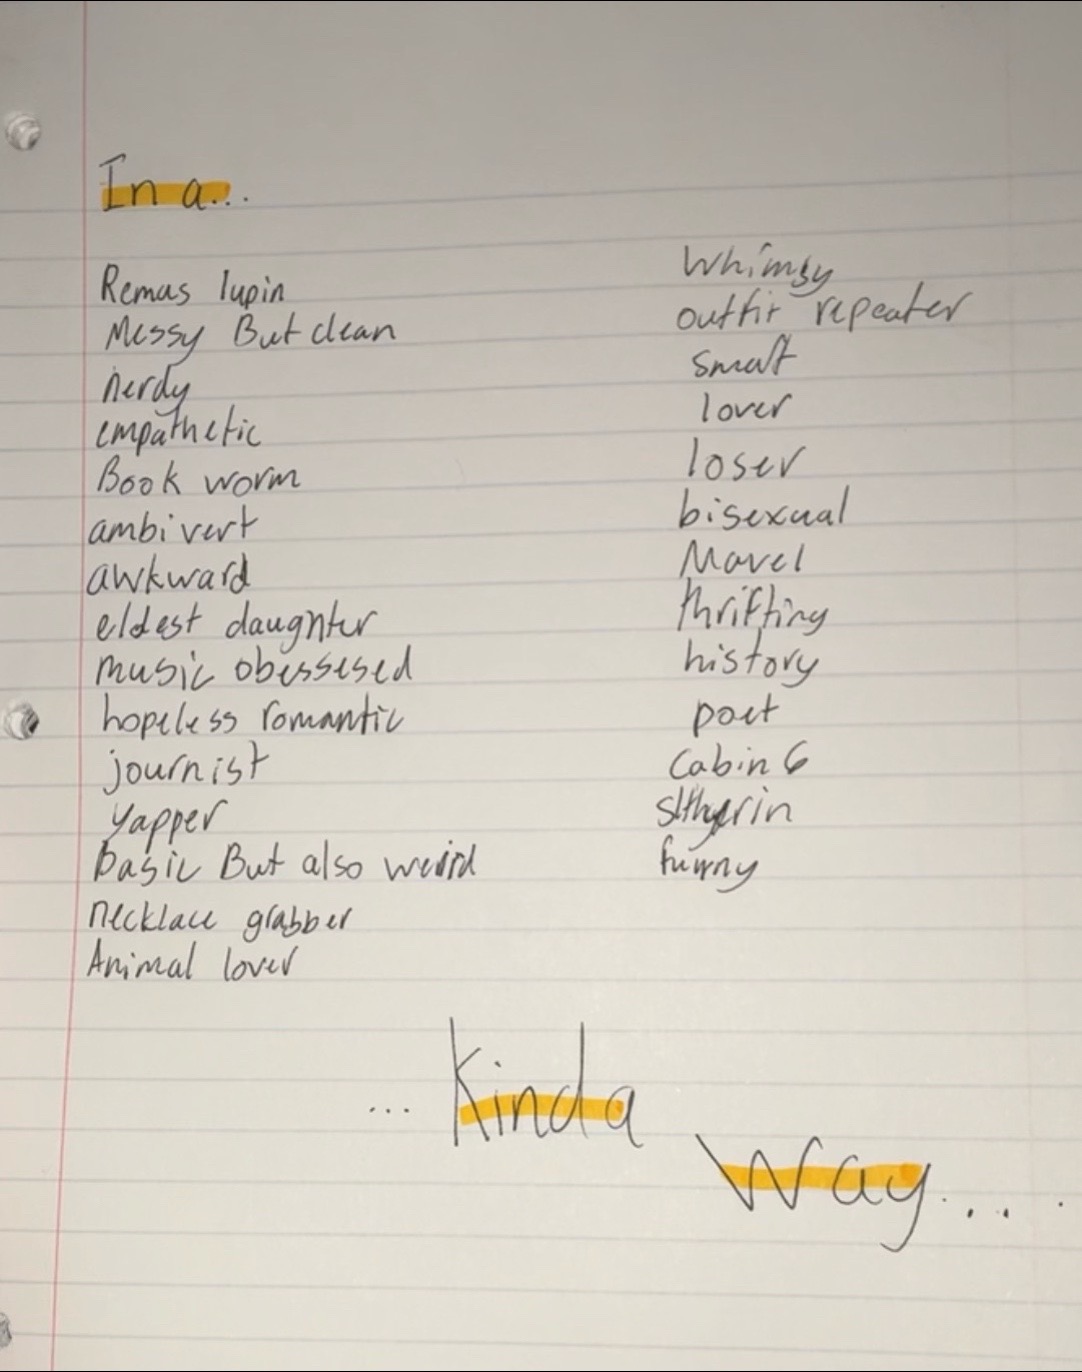 In a...
Remus lupin
Messy But clean
nerdy
empathetic
Book worm
ambivert
awkward
eldest daughter
music obessesed
hopeless romantic
journist
yapper
basic But also weird
necklace grabber
Animal lover
whimsy
outfit repeater
smart
lover
loser
bisexual
Mavel
thrifting
history
poet
Cabin 6
slthyerin
funny
... Kinda
Way....